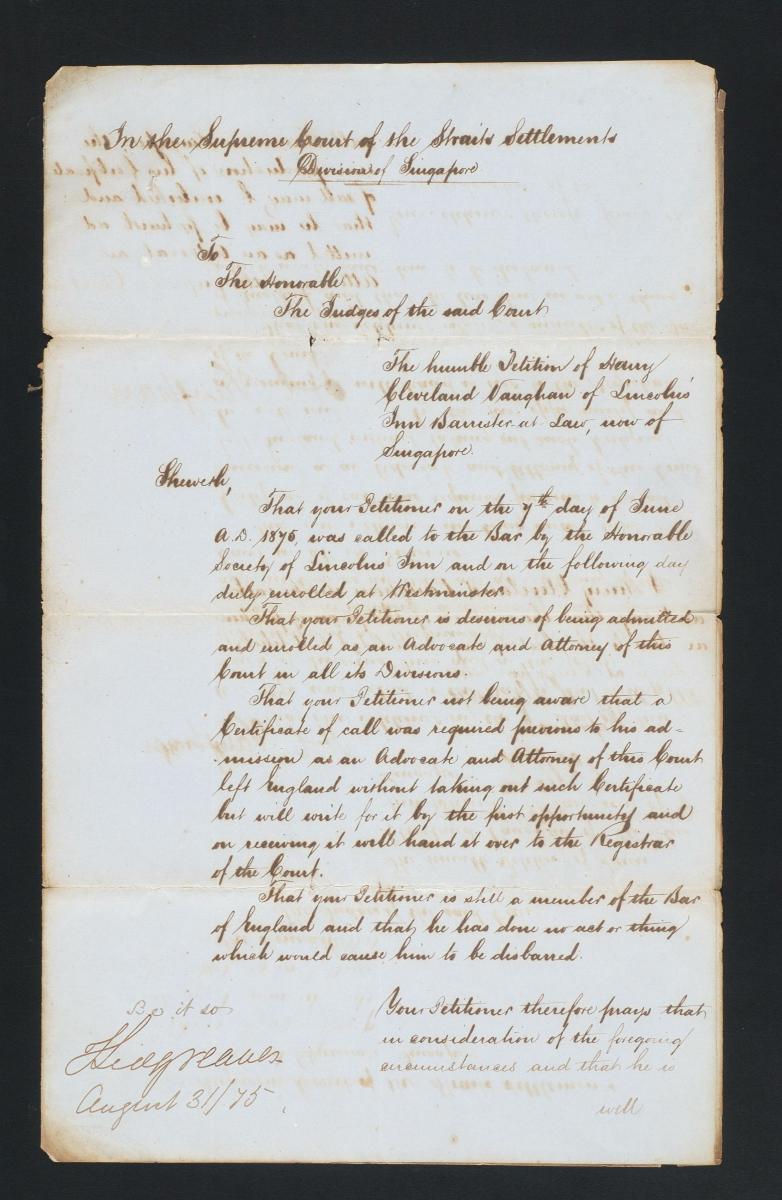 In the Supreme Court of the Straits Settlements
Division of Singapore
To
The Honorable
The Judges of the said Court
The humble Petition of Henry
Cleveland Vaughan of Lincoln's
Inn Barrister at Law, now of
Singapore.
Sheweth,
That your Petitioner on the 7th day of June
A.D. 1875, was called to the Bar by the Honorable
Society of Lincolns' Inn and on the following day
duly enrolled at Westminster
That your Petitioner is desirous of being admitted
and enrolled as an Advocate and Attorney of this
Court in all its Divisions.
That your Petitioner not being aware that a
Certificate of call was required previous to his ad=
mission as an Advocate and Attorney of this Court
left England without taking out such Certificate
but will write for it by the first opportunity and
on receiving it will hand it over to the Registrar
of the Court.
That your Petitioner is still a member of the Bar
of England and that he has done no act or thing
which would cause him to be disbarred.
Your Petitioner therefore prays that
in consideration of the foregoing
circumstances and that he is
well
Be it so
August 31/75